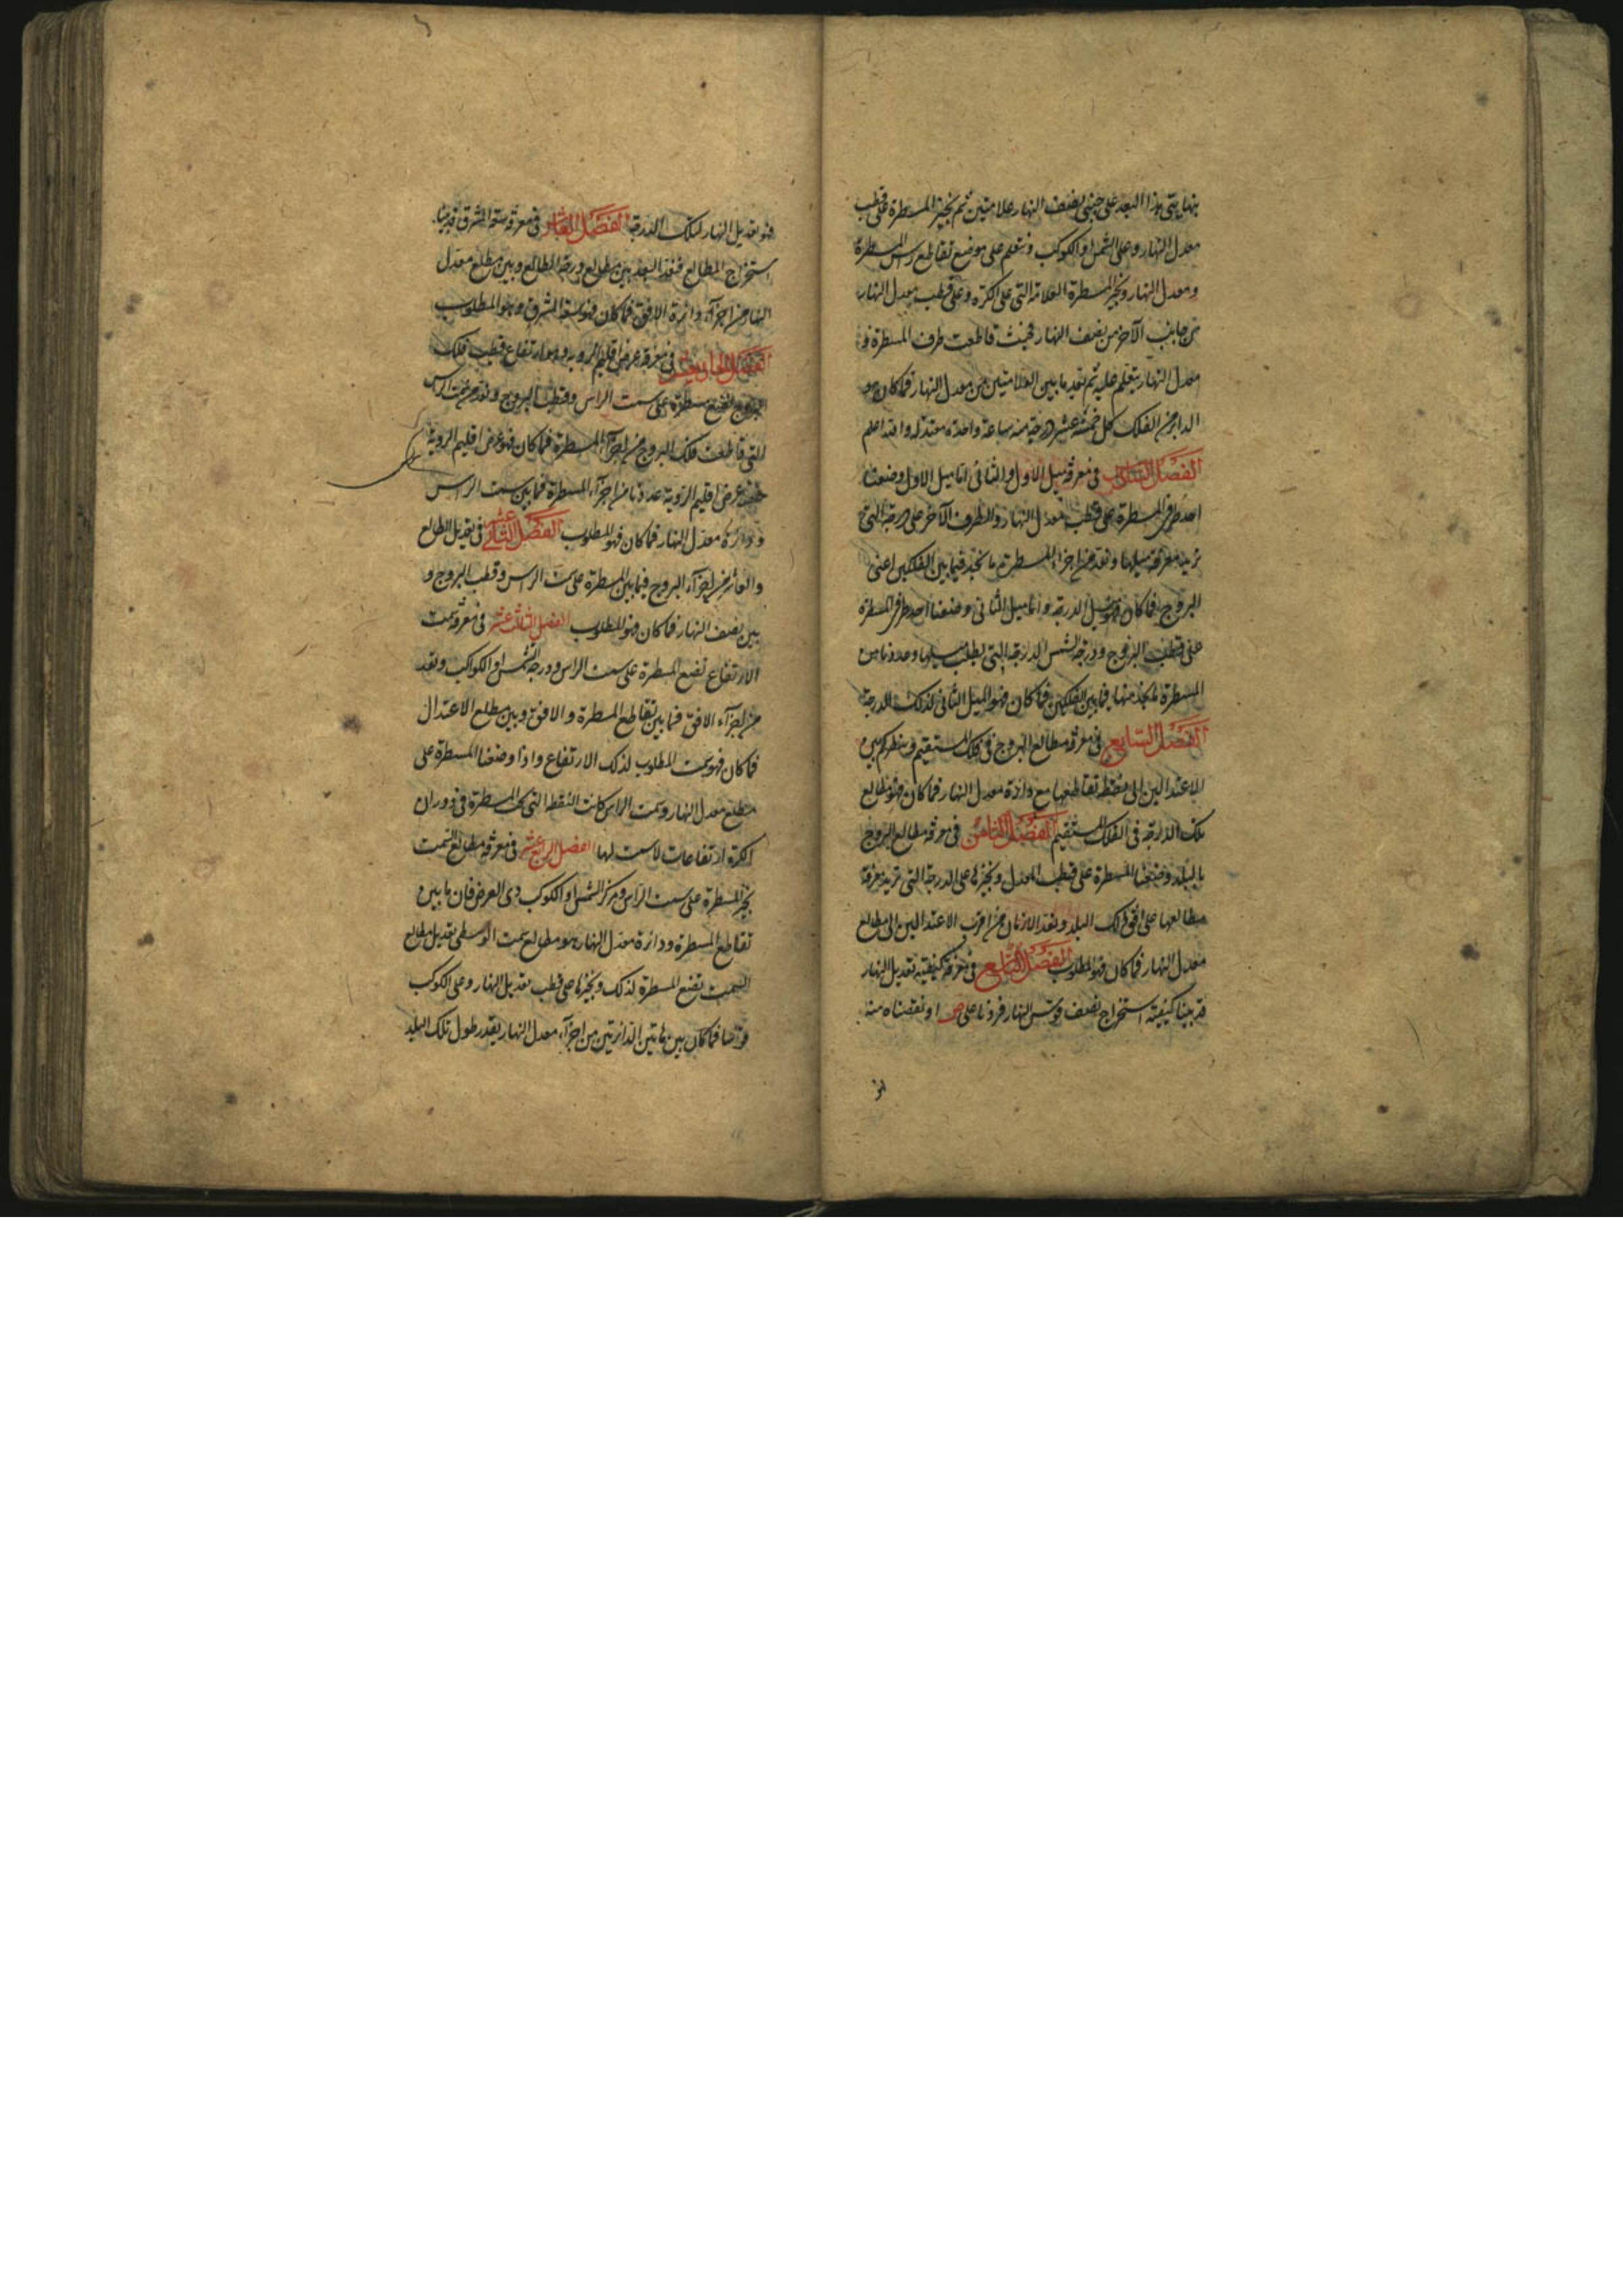 بهابقى هذا البعد على جنبى نصف النهار علامتين ثم نجيز المسطرة على قطب
معدل النهار وعلى الشمس او الكوكب ونتعلم على موضع تقاطع راس المسطرة
ومعدل النهار ونجيز المسطرة العلامة التى على الكرة وعلى قطب معدل النهار
من جانب الآخر من نصف النهار فحيث قاطعت طرف المسطرة
معدل النهار يتعلم عليه ثم نعد ما بين العلامتين من معدل النهار فما كان هو
الداير من الفلك كل خمسة عشر درجة منه ساعة واحدة معتدلة والله اعلم
الفصل السادس فى معرفة ميل الاول والثانى اما ميل الاول وضعنا
احد طرفى المسطرة على قطب معدل النهار والطرف الآخر على درجة التى
نريد معرفة ميلها ونعد من اجزاء المسطرة ما نجد فيما بين الفلكين اعنى
البروج فما كان فهو ميل الدرجة واما ميل الثانى وضعنا احد طرفى المسطرة
على قطب البروج ودرجة الشمس الدرجة التى يطلب ميلها وعددنا من
المسطرة ما نجد منها فيما بين الفلكين فما كان فهو الميل الثانى لذلك الدرجة
الفصل السابع فى معرفة مطالع البروج فى فلك المستقيم وينظر كم بين
الاعتدالين الى نقطة تقاطعها مع دائرة معدل النهار فما كان فهو مطالع
تلك الدرجة فى الفلك المستقيم الفصل الثامن فى معرفة مطالع البروج
بالبلد وضعنا المسطرة على قطب المعدل ونجيزها على الدرجة التى نريد معرفة
مطالعها على افق ذلك البلد ونعد الازمان من اقرب الاعتدالين الى مطالع
معدل النهار فما كان فهو المطلوب الفصل التاسع فى معرفة كيفية تعديل النهار
قد بينا كيفية استخراج نصف قوس النهار فزدنا على ص او نقصناه منه
فهو تعديل النهار لتلك الدرجة الفصل العاشر فى معرفة سعة المشرق قد بينا
استخراج المطالع فنعد البعد بين مطالع درجة المطالع وبين مطلع معدل
النهار من اجزاء دائرة الافق فما كان فهو سعة المشرق وهو المطلوب
الفصل الحادى عشر فى معرفة عرض اقليم الروية وهو ارتفاع قطب فلك
البروج نضع مسطرة على سمت الراس وقطب البروج ونعد من سمت الراس
التى قاطعت فلك البروج من اجزاء المسطرة فما كان فهو عرض اقليم الروية
عرض اقليم الروية عددنا من اجزاء المسطرة فما بين سمت الراس
ودائرة معدل النهار فما كان فهو المطلوب الفصل الثانى عشر فى تعديل الطالع
والعاشر من اجزاء البروج فيما بين المسطرة على سمت الراس وقطب البروج و
بين نصف النهار فما كان فهو المطلوب الفصل الثالث عشر فى معرفة سمت
الارتفاع نضع المسطرة على سمت الراس ودرجة الشمس او الكواكب ونعد
من اجزاء الافق فما بين تقاطع المسطرة والافق وبين مطلع الاعتدال
فما كان فهو سمت المطلوب لذلك الارتفاع واذا وضعنا المسطرة على
مطلع معدل النهار وسمت الراس كانت النقط التى تحت المسطرة فى دوران
الكرة ارتفاعات لا سمت لها الفصل الرابع عشر فى معرفة مطالع السمت
نجيز المسطرة على سمت الراس ومركز الشمس او الكوكب ذى العرض فان ما بين
تقاطع المسطرة ودائرة معدل النهار هو مطالع سمت الوسطى تعديل مطالع
السمت نضع المسطرة لذلك ونجيزها على قطب تعديل النهار وعلى الكوكب
فما كان بين هاتين الدائرتين من اجزاء معدل النهار بقدر طول تلك البلد